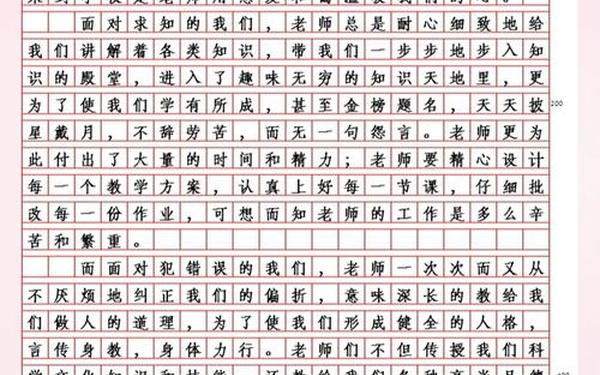 面对求知的我们，老师总是耐心细致地给
我们讲解着各类知识，带我们一步步地步入知
识的殿堂，进入了趣味无穷的知识天地里，更
为了使我们学有所成，甚至金榜题名，天天披
200
星戴月，不辞劳苦，而无一句怨言。老师更为
此付出了大量的时间和精力；老师要精心设计
每一个教学方案，认真上好每一节课，仔细批
改每一份作业，可想而知老师的工作是多么辛
苦和繁重。
面面对犯错误的我们，老师一次次而又从
不厌烦地纠正我们的偏折，意味深长的教给我
们做人的道理，为了使我们形成健全的人格，
言传身教，身体力行。老师们不但传授我们科